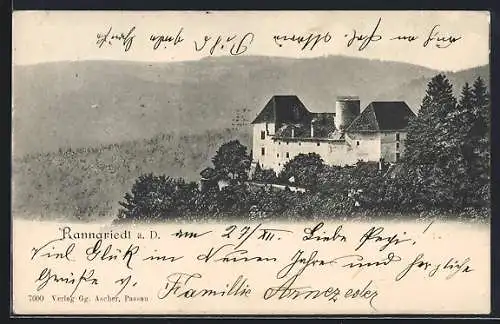 Rannariedl a. D. am 27/XII. Liebe Pepi!
Viel Glück im Neuen Jahre und herzlich
Grüße v.
Familie Arnezeder
7000 Verlag Gg. Ascher, Passau